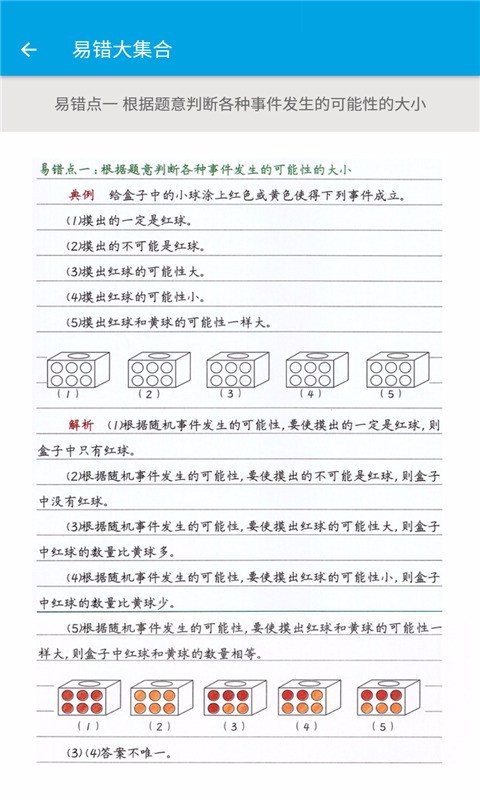 易错大集合
易错点一 根据题意判断各种事件发生的可能性的大小
易错点一:根据题意判断各种事件发生的可能性的大小
典例 给盒子中的小球涂上红色或黄色使得下列事件成立。
(1)摸出的一定是红球。
(2)摸出的不可能是红球。
(3)摸出红球的可能性大。
(4)摸出红球的可能性小。
(5)摸出红球和黄球的可能性一样大。
(1) (2) (3) (4) (5)
解析 (1)根据随机事件发生的可能性,要使摸出的一定是红球,则
盒子中只有红球。
(2)根据随机事件发生的可能性,要使摸出的不可能是红球,则盒子
中没有红球。
(3)根据随机事件发生的可能性,要使摸出红球的可能性大,则盒子
中红球的数量比黄球多。
(4)根据随机事件发生的可能性,要使摸出红球的可能性小,则盒子
中红球的数量比黄球少。
(5)根据随机事件发生的可能性,要使摸出红球和黄球的可能性一
样大,则盒子中红球和黄球的数量相等。
(1) (2) (3) (4) (5)
(3)(4)答案不唯一。